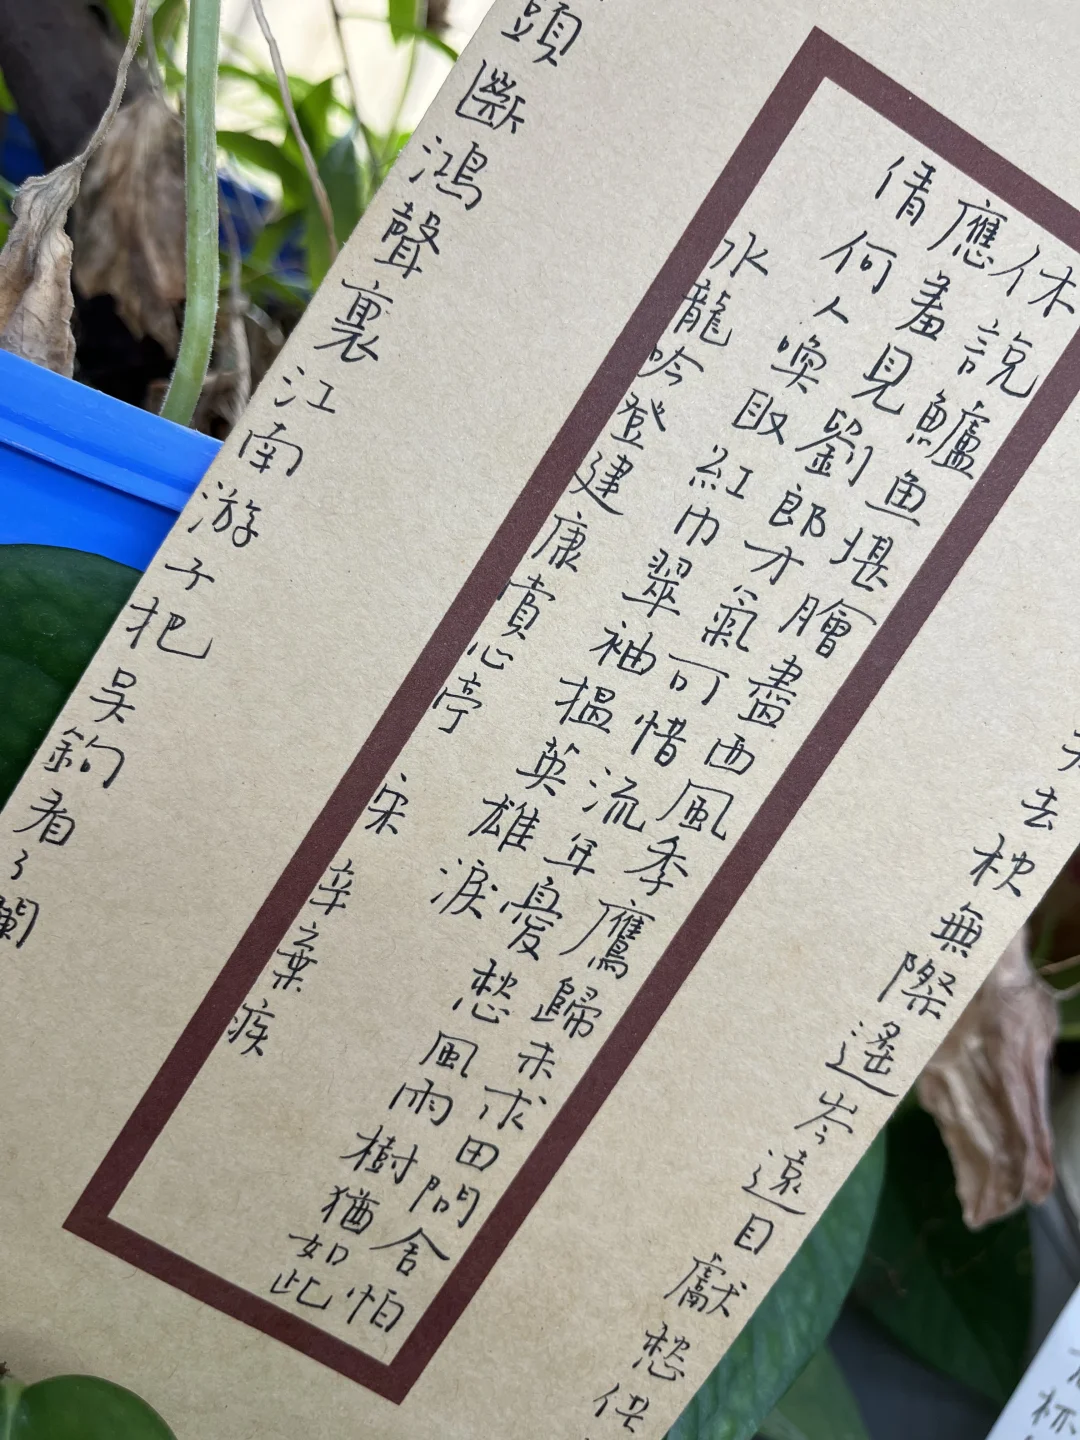 去秋無際遙岑遠目獻愁供
休說鱸鱼堪膾盡西風季鷹歸未求田問舍怕
應羞見劉郎才氣可惜流年憂愁風雨樹猶如此
倩何人喚取紅巾翠袖揾英雄淚
水龍吟登建康賞心亭 宋 辛棄疾
頭斷鴻聲裏江南游子把吳鈎看了闌